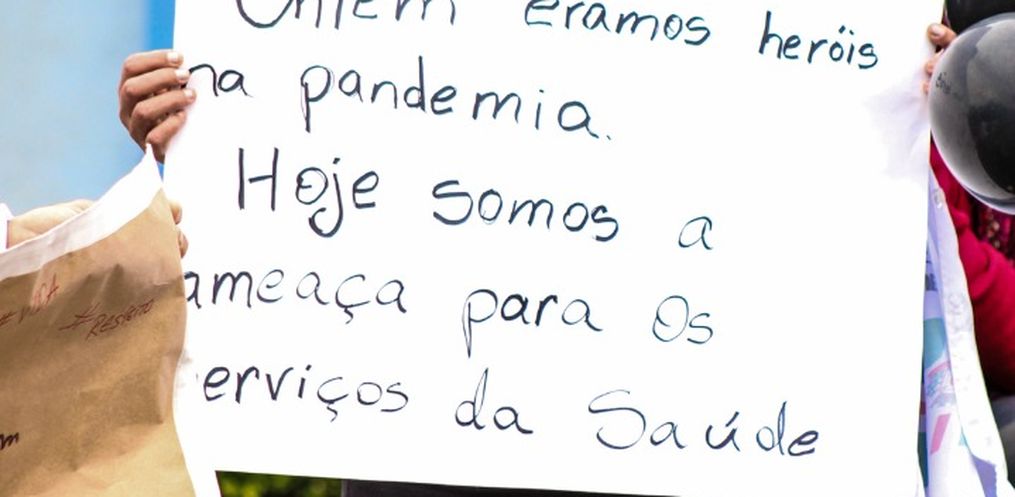 Ontem éramos heróis
na pandemia.
Hoje somos a
ameaça para os
serviços da Saúde
#VIDA
#RESPEITO